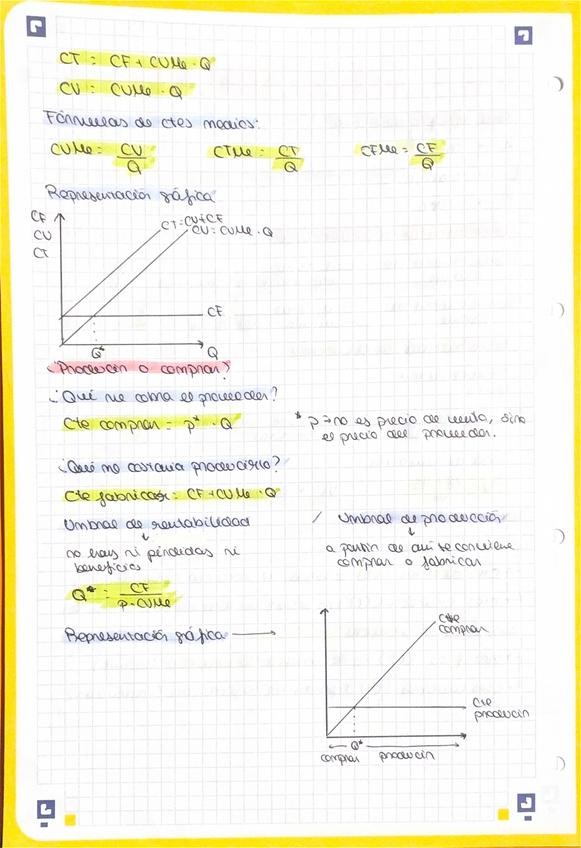 CT = CF + CUMe · Q
CV = CUMe · Q
Fórmulas de ctes medios:
CUMe = CV/Q CTMe = CT/Q CFMe = CF/Q
Representación gráfica
CF
CV
CT
CT=CV+CF
CV=CUMe·Q
CF
Q* Q
¿Producir o comprar?
¿Qué me cobra el proveedor?
Cte comprar = p* · Q
* p → no es precio de venta, sino
el precio del proveedor.
¿Qué me costaría producirlo?
Cte fabricar = CF + CUMe · Q
Umbral de rentabilidad / Umbral de producción
↓ ↓
no hay ni pérdidas ni
beneficios
a partir de aquí te conviene
comprar o fabricar
Q* = CF/P-CUMe
Representación gráfica →
Cte
comprar
Cte
producir
← Q* →
comprar producir